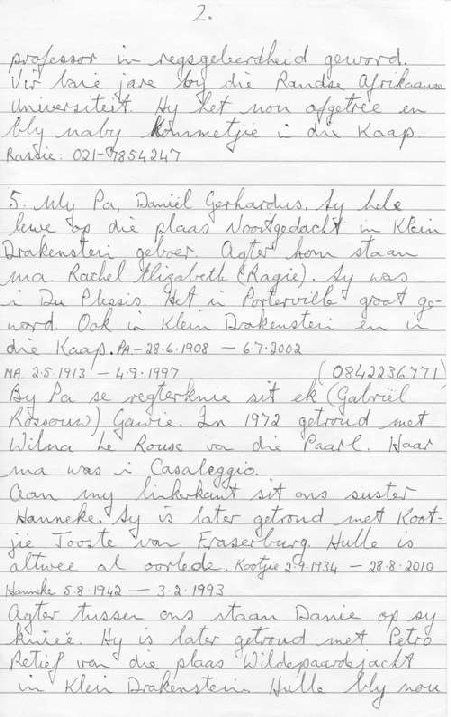 2.
professor in regsgeleerdheid geword.
Vir baie jare by die Randse Afrikaanse
Universiteit. Hy het nou afgetree en
bly naby Kommetjie i die Kaap.
Rassie: 021-7854247
5. My Pa, Daniël Gerhardus. Sy hele
lewe op die plaas Nooitgedacht in Klein
Drakenstein geboer. Agter hom staan
ma. Rachel Elizabeth (Ragie). Sy was
'n Du Plessis. Het in Porterville groot ge-
word. Ook in Klein Drakenstein en in
die Kaap. PA - 28.6.1908 - 6.7.2002
MA 2.5.1913 - 4.9.1997 (0842236771)
By Pa se regterknie sit ek (Gabriël
Rossouw) Gawie. In 1972 getroud met
Wilna Le Rouse van die Paarl. Haar
ma was 'n Casaleggio.
Aan my linkerkant sit ons suster
Hanneke. Sy is later getroud met Koot-
jie Jooste van Fraserburg. Hulle is
altwee al oorlede. Kootjie 2.9.1934 - 28.8.2010
Hanneke 5.8.1942 - 3.2.1993
Agter tussen ons staan Danie op sy
knieë. Hy is later getroud met Petro
Retief van die plaas Wildepaardejacht
in Klein Drakenstein. Hulle bly nou